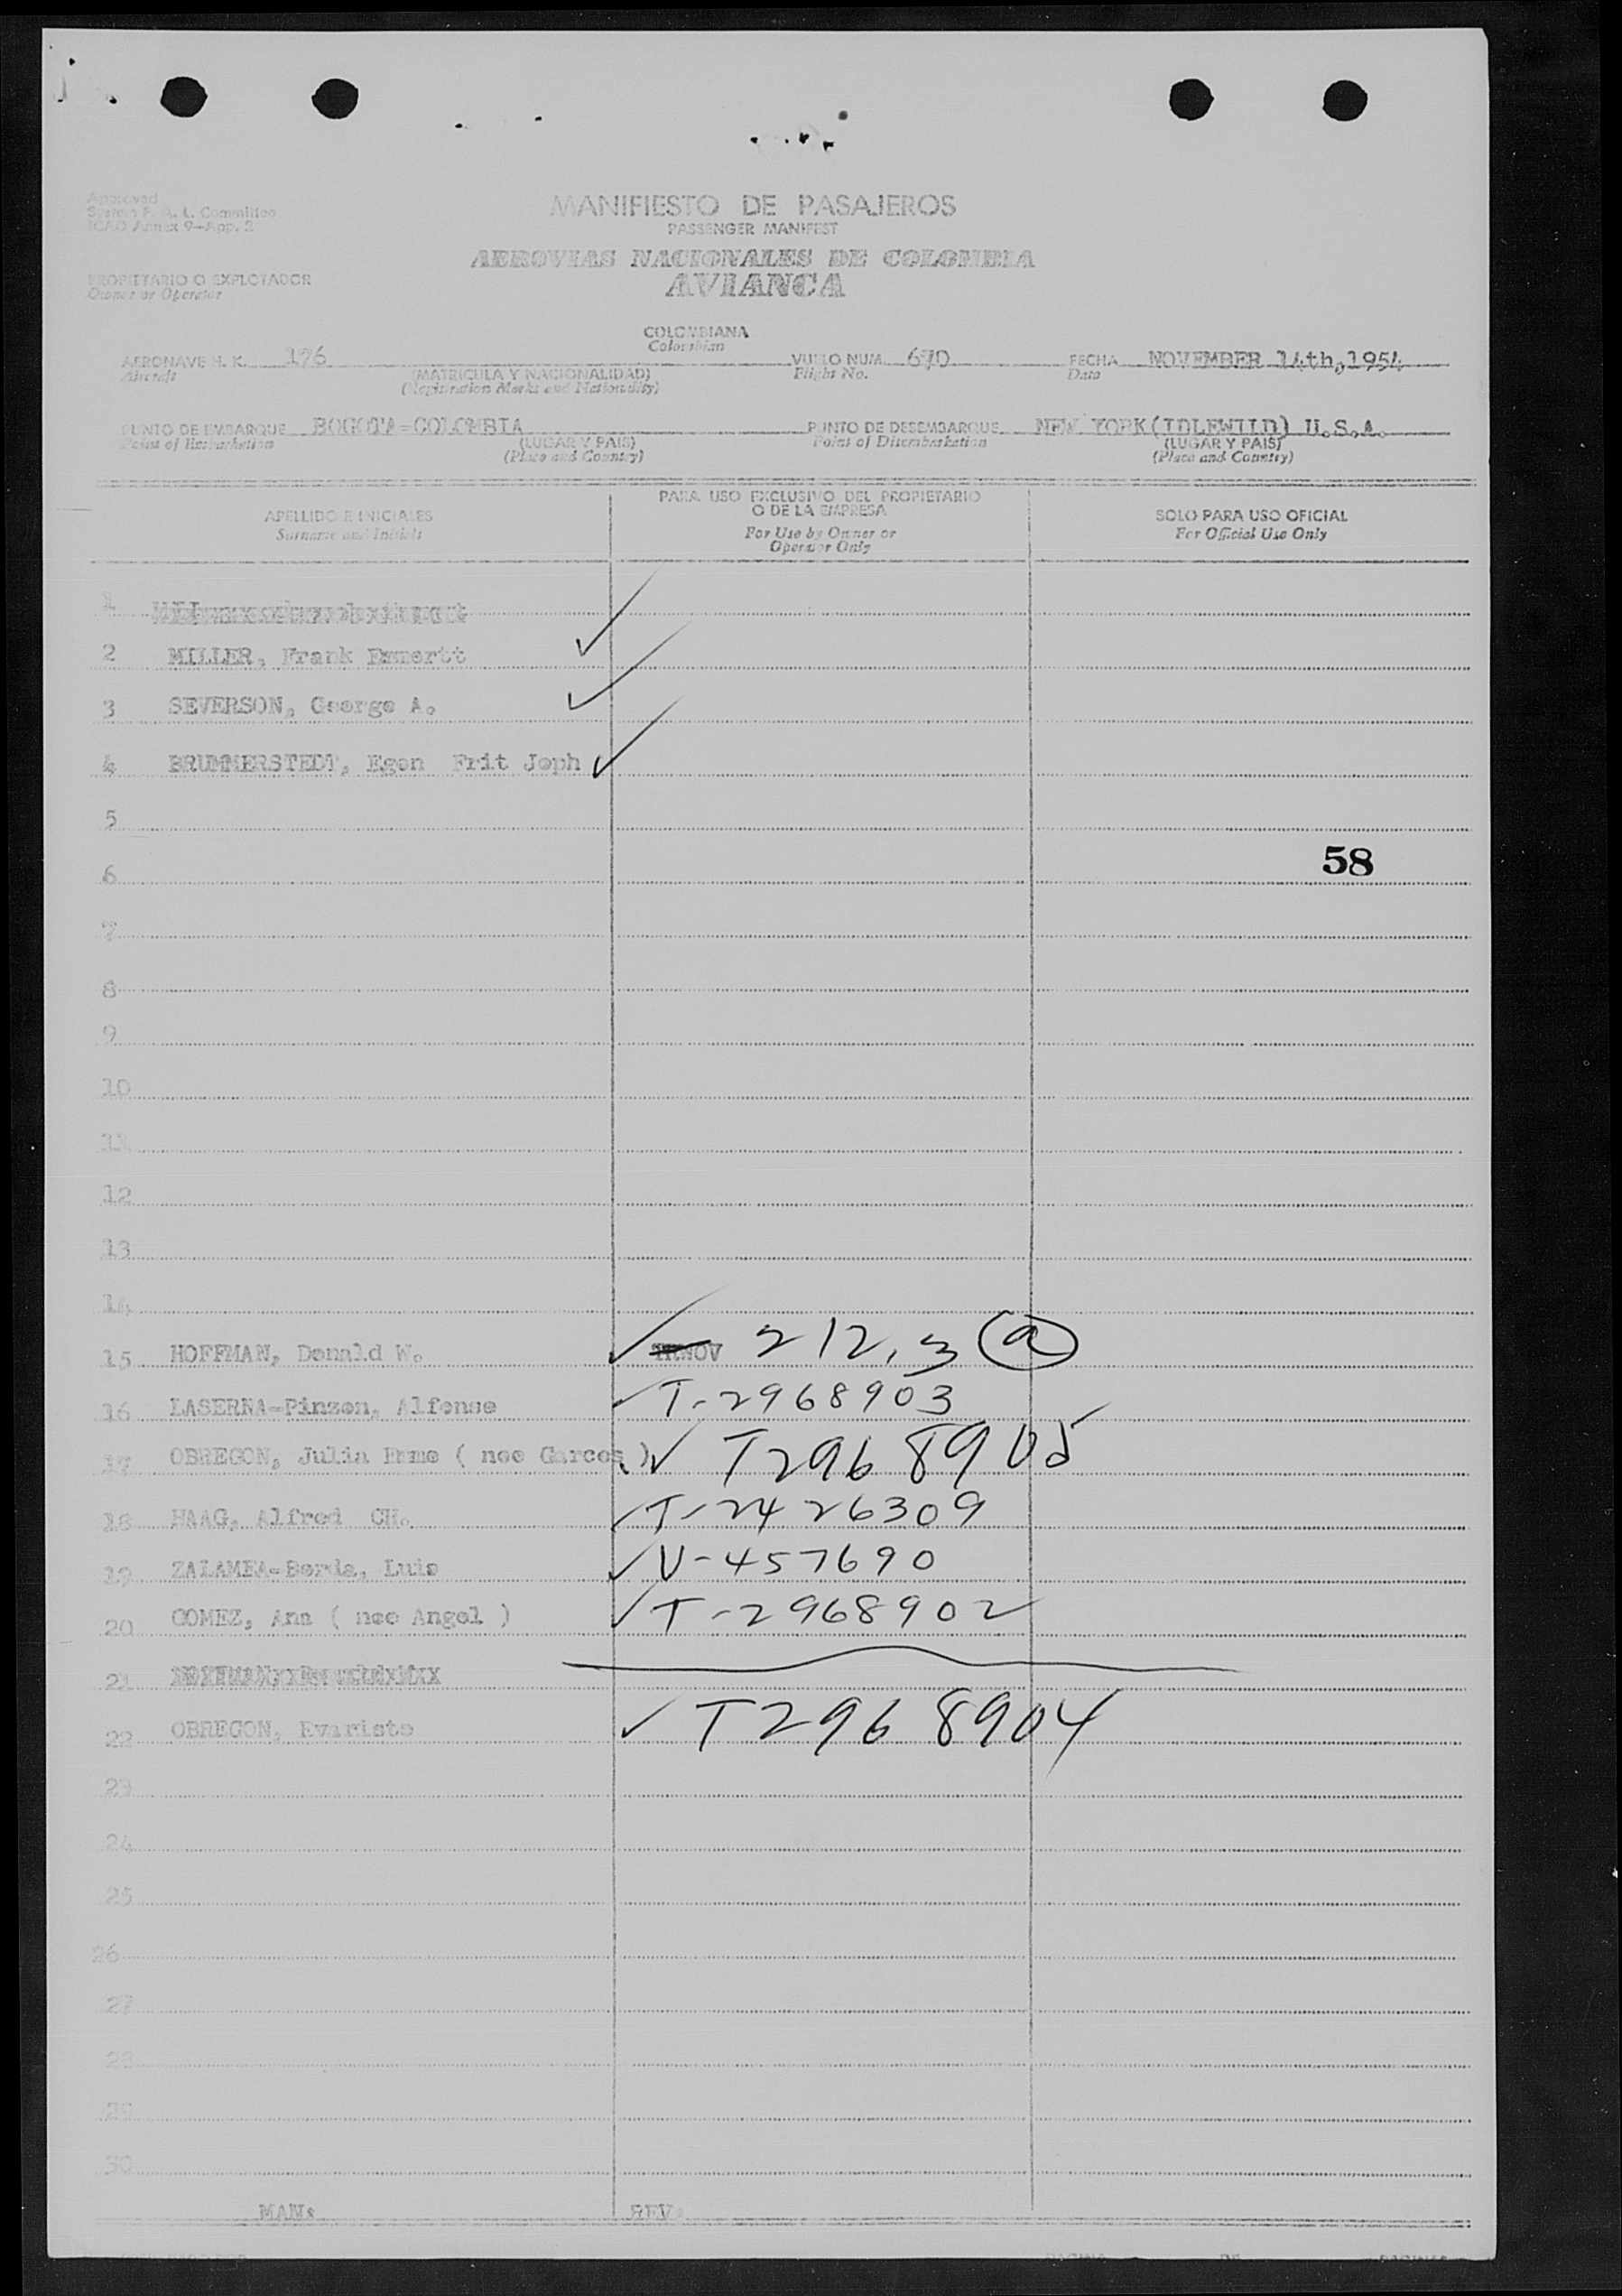 Approved
System F. A. L. Committee
ICAO Annex 9-App. 2
MANIFIESTO DE PASAJEROS
PASSENGER MANIFEST
AEROVIAS NACIONALES DE COLOMBIA
AVIANCA
PROPIETARIO O EXPLOTADOR
Owner or Operator
COLOMBIANA
Colombian
AERONAVE H. K. 176 VUELO NUM. 670 FECHA NOVEMBER 14th, 1954
Aircraft (MATRICULA Y NACIONALIDAD) Flight No. Date
(Registration Marks and Nationality)
PUNTO DE EMBARQUE BOGOTA-COLOMBIA PUNTO DE DESEMBARQUE NEW YORK(IDLEWILD) U.S.A.
Point of Embarkation (LUGAR Y PAIS) Point of Disembarkation (LUGAR Y PAIS)
(Place and Country) (Place and Country)
APELLIDO E INICIALES
Surname and Initials
PARA USO EXCLUSIVO DEL PROPIETARIO
O DE LA EMPRESA
For Use by Owner or
Operator Only
SOLO PARA USO OFICIAL
For Official Use Only
1
2 MILLER, Frank Emmertt
3 SEVERSON, George A.
4 BRUMMERSTEDT, Egon Frit Joph
5
6 58
7
8
9
10
11
12
13
14
15 HOFFMAN, Donald W. 212.3 (a)
16 LASERNA-Pinzon, Alfonso T-2968903
17 OBREGON, Julia Emme ( nee Garces ) T2968905
18 HAAG, Alfred CH. T-2426309
19 ZALAMEA-Borda, Luis V-457690
20 GOMEZ, Ana ( nee Angel ) T-2968902
21
22 OBREGON, Evaristo T2968904
23
24
25
26
27
28
29
30
MAN: REV: